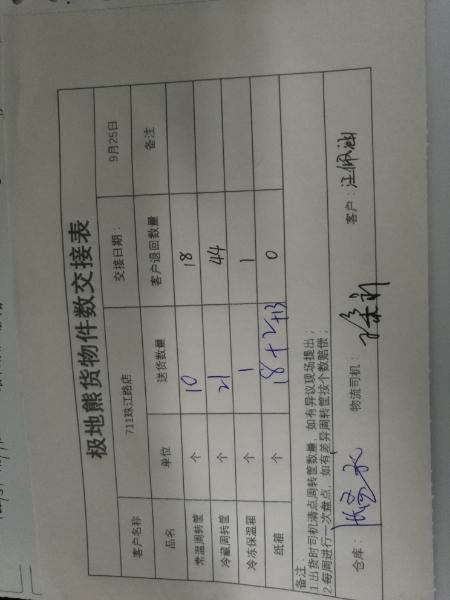 极地熊货物件数交接表
客户名称 711珠江路店 交接日期： 9月25日
品名 单位 送货数量 客户退回数量 备注
常温周转筐 个 10 18
冷藏周转筐 个 21 44
冷冻保温箱 个 1 1
纸箱 个 18+2+13 0
备注：
1.出货时司机清点周转筐数量，如有异议现场提出；
2.每周进行一次盘点，如有差异周转筐按个数赔偿；
仓库： 物流司机： 客户：汪佩湘